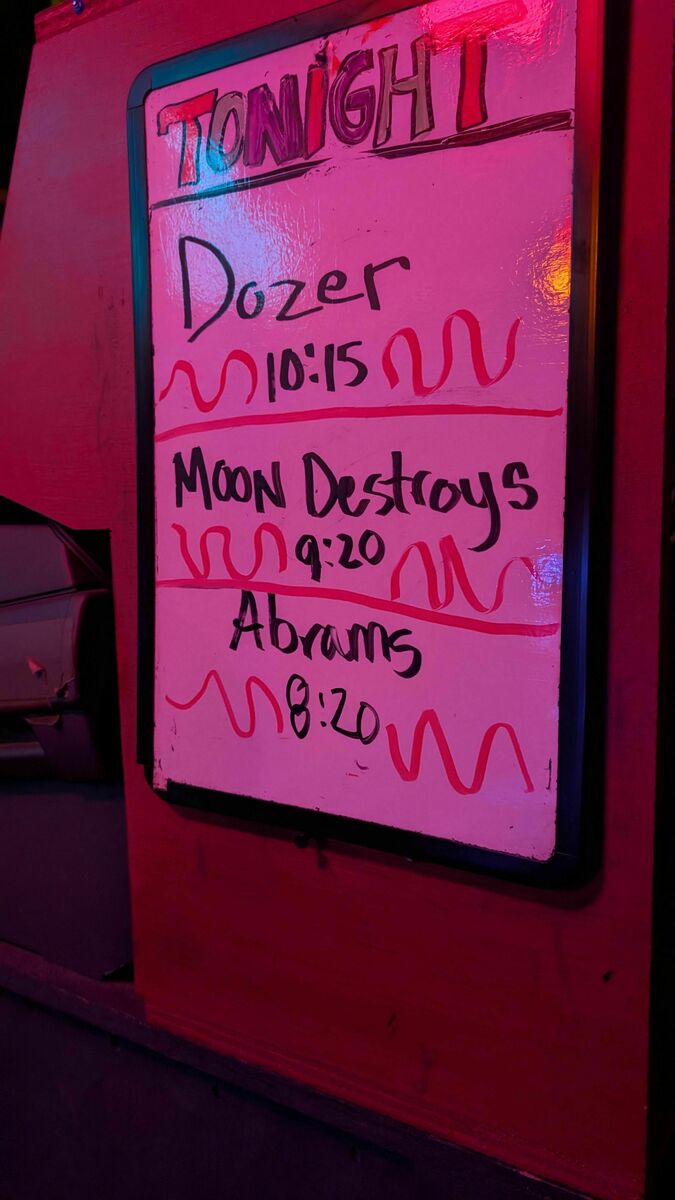 TONIGHT
Dozer
10:15
Moon Destroys
9:20
Abrams
8:20